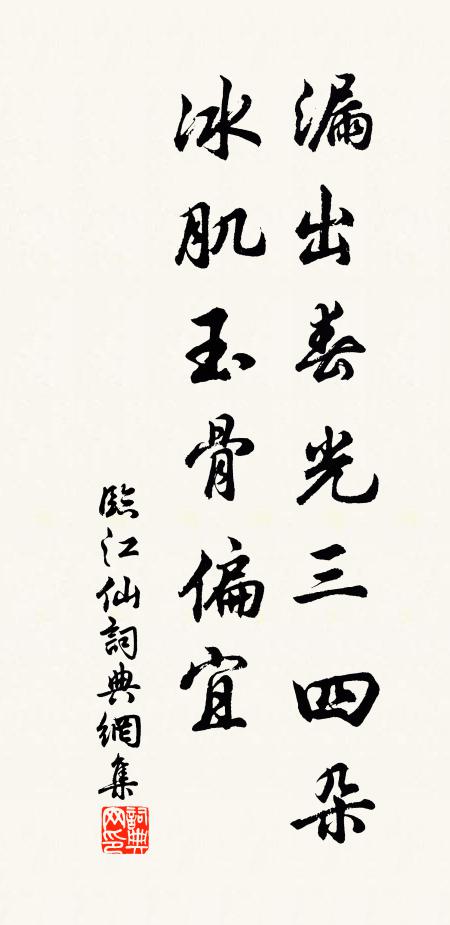 漏出春光三四朵
冰肌玉骨偏宜
臨江仙詞典網集
詞典网印